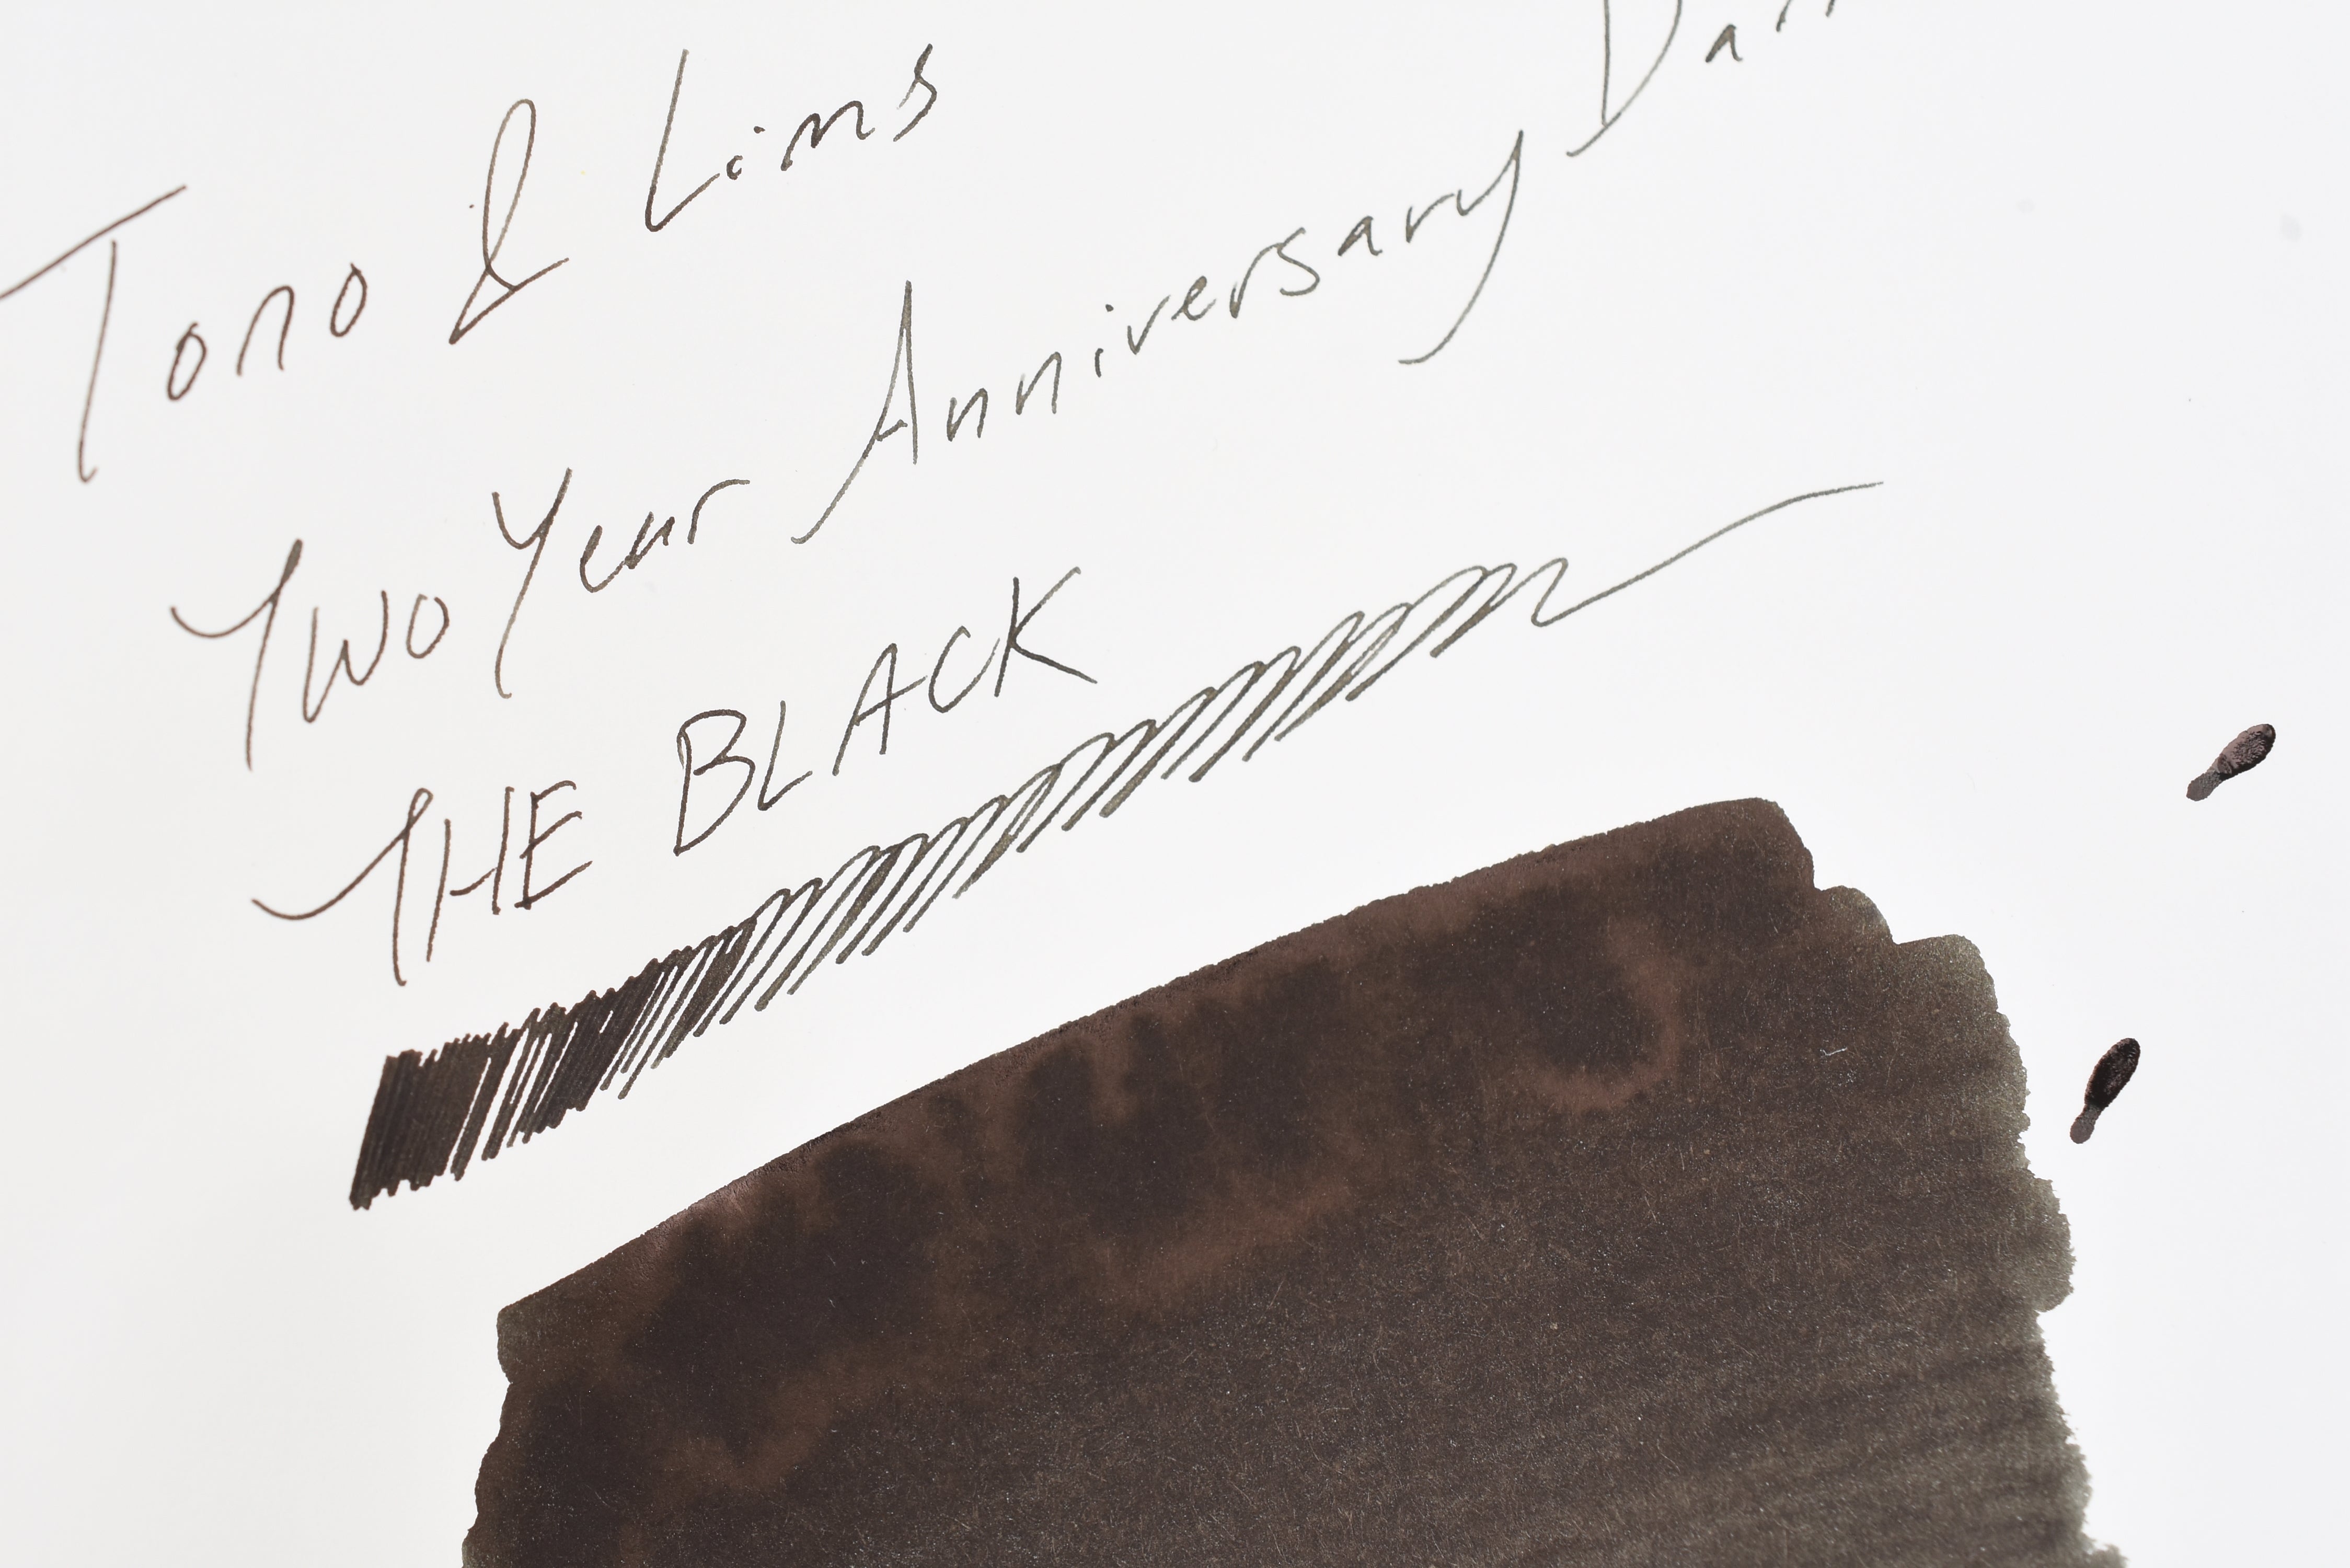 Tono & Lims
Two Year Anniversary
THE BLACK